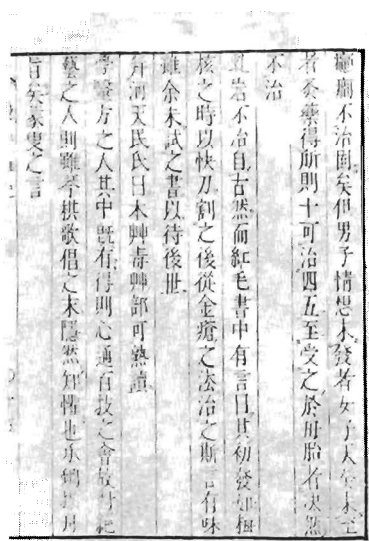 癲癇不治固矣但男子情想未發者女子天癸未至
者灸藥得所則十可治四五至受之於母胎者决然
不治
乳岩不治自古然而紅毛書中有言曰其初發如梅
核之時以快刀割之後從金瘡之法治之斯言有味
雖余未試之書以待後世
井河天民氏曰本艸毒艸部可熟讀
學醫方之人其中既有得則心通百技之會故
藝之人則雖琴棋歌倡之末隱然知
旨矣家叟之言